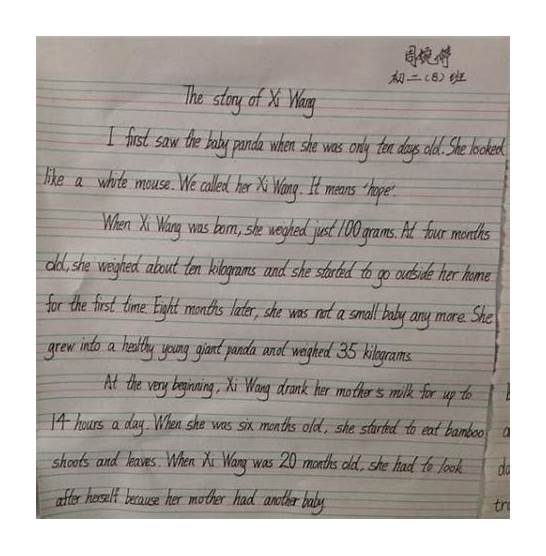 周婉倩
初二(8)班
The story of Xi Wang
I first saw the baby panda when she was only ten days old. She looked
like a white mouse. We called her Xi Wang. It means 'hope'.
When Xi Wang was born, she weighed just 100 grams. At four months
old, she weighed about ten kilograms and she started to go outside her home
for the first time. Eight months later, she was not a small baby any more. She
grew into a healthy young giant panda and weighed 35 kilograms.
At the very beginning, Xi Wang drank her mother's milk for up to
14 hours a day. When she was six months old, she started to eat bamboo
shoots and leaves. When Xi Wang was 20 months old, she had to look
after herself because her mother had another baby.